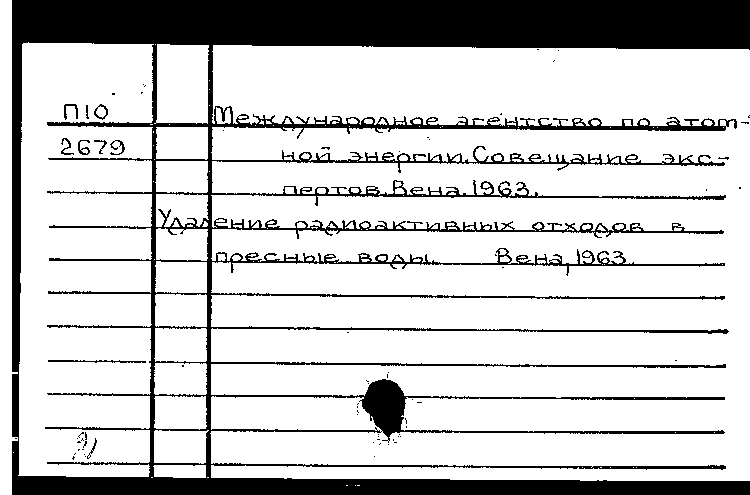 П10
Международное агентство по атом-
2679
ной энергии. Совещание экс-
пертов. Вена. 1963.
Удаление радиоактивных отходов в
пресные воды. Вена, 1963.